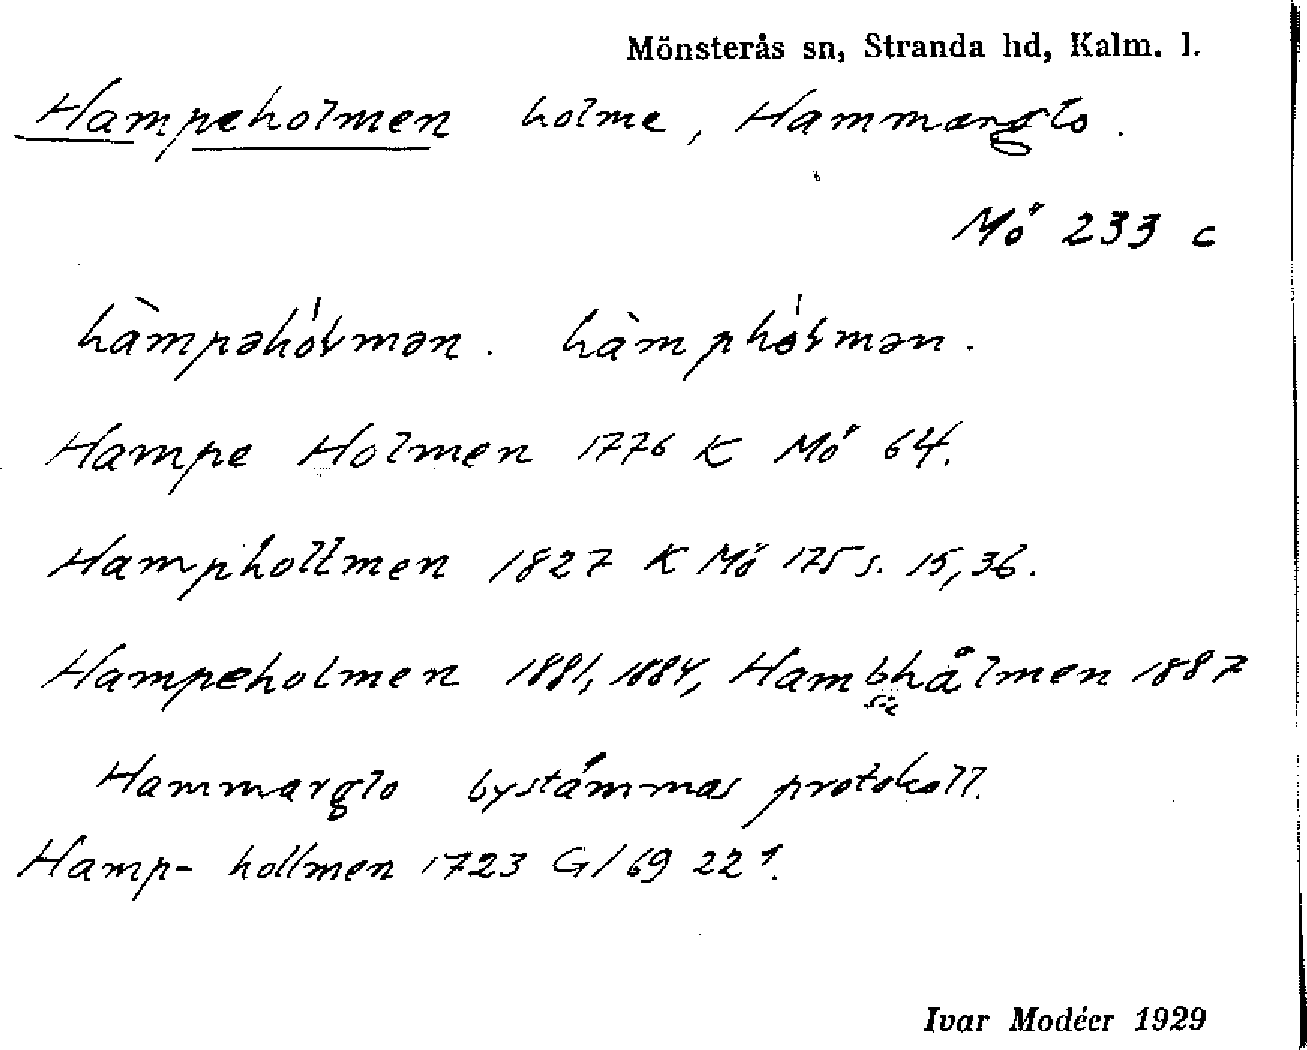 Mönsterås sn, Stranda hd, Kalm. l.
Hampeholmen holme, Hammarglo.
Mö 233 c
hàmpəhó̍ɫmən. hàmphó̍ɫmən.
Hampe Holmen 1776 K Mö 64.
Hamphollmen 1827 K Mö 175 s. 15, 36.
Hampeholmen 1881, 1884, Hambhålmen 1887
sic
Hammarglo bystämmas protokoll.
Hamp- hollmen 1723 G/69 22¹.
Ivar Modéer 1929